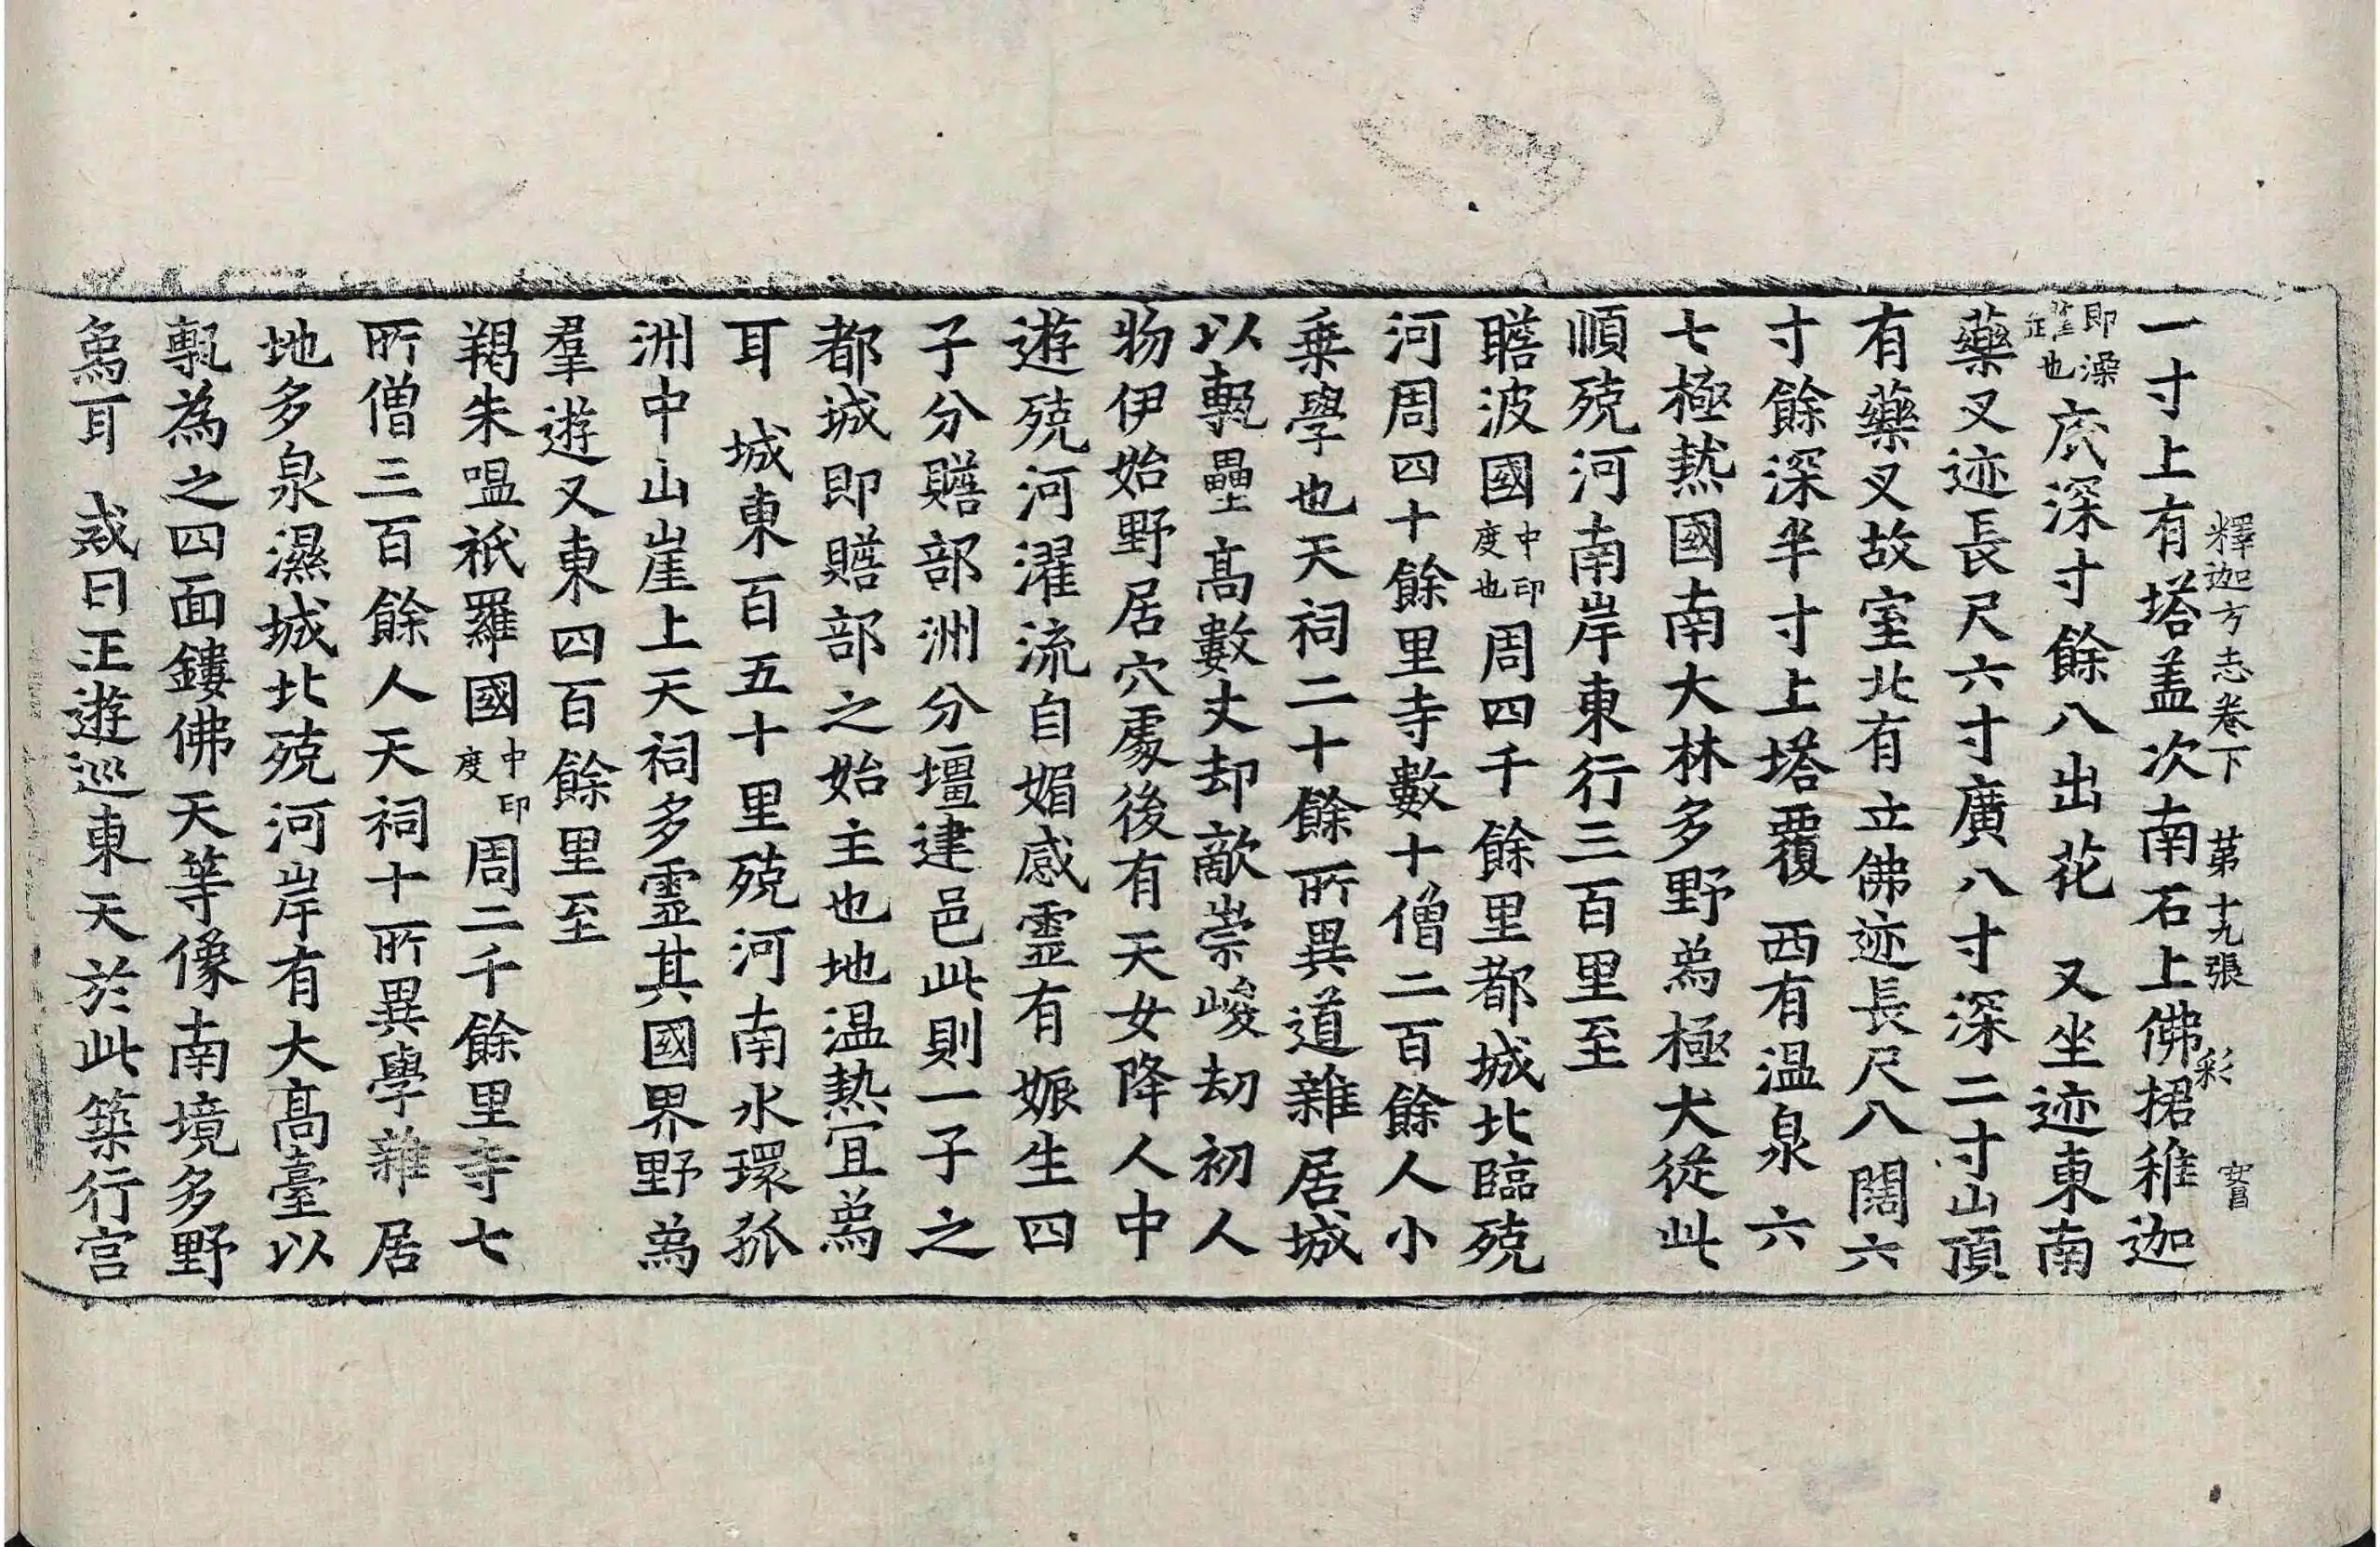 釋迦方志卷下 苐十九張 彩
一寸上有塔盖次南石上佛捃稚迦
即澡𤭁也底深寸餘八出花 又坐迹東南
藥叉迹長尺六寸廣八寸深二寸山頂
有藥叉故室北有立佛迹長尺八闊六
寸餘深半寸上塔覆 西有温泉六
七極熱國南大林多野爲極大從此
順殑河南岸東行三百里至
瞻波國中印度也周四千餘里都城北臨殑
河周四十餘里寺數十僧二百餘人小
乗學也天祠二十餘所異道雜居城
以甎壘髙數丈却敵崇峻劫初人
物伊始野居穴處後有天女降人中
遊殑河濯流自媚感靈有娠生四
子分贍部洲分壃建邑此則一子之
都城即贍部之始主也地温熱冝爲
耳 城東百五十里殑河南水環孤
洲中山崖上天祠多靈其國界野爲
羣遊又東四百餘里至
羯朱嗢祇羅國中印度周二千餘里寺七
所僧三百餘人天祠十所異學雜居
地多泉濕城北殑河岸有大髙臺以
甎為之四面鏤佛天等像南境多野
爲耳 或曰正遊巡東天於此築行宫